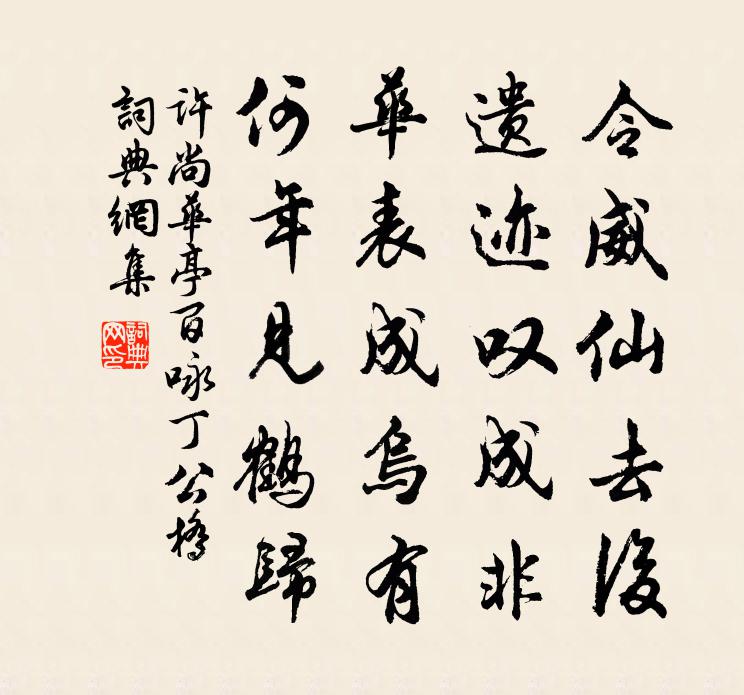 令威仙去後
遗迹叹成非
華表成烏有
何年見鶴歸
许尚華亭百咏丁公橋
詞典網集
詞典網印